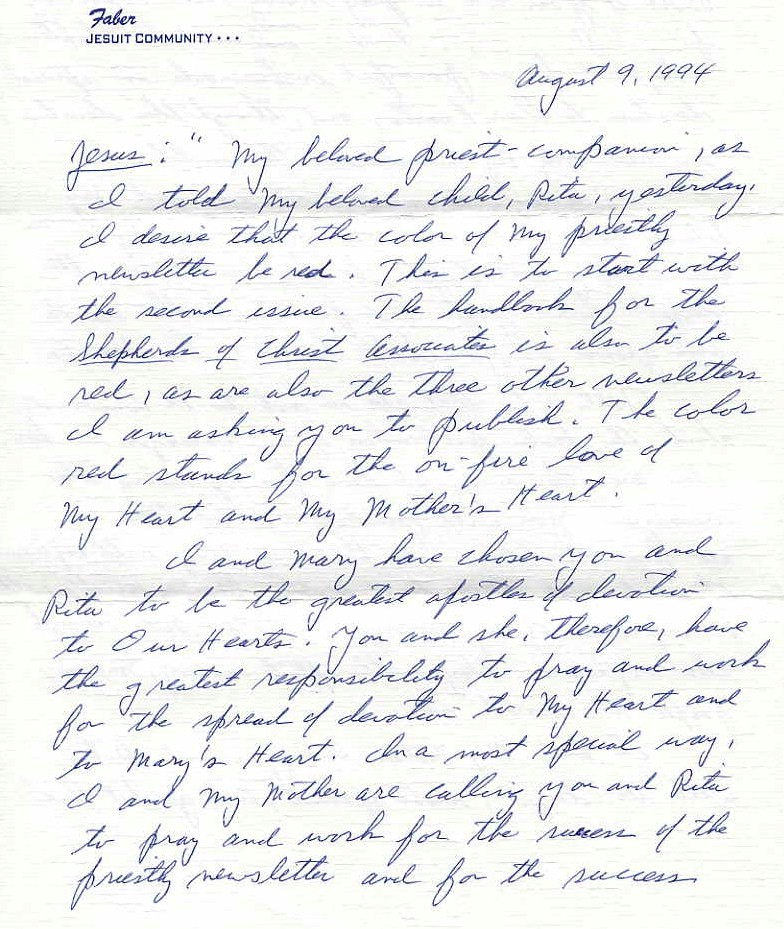 Faber
JESUIT COMMUNITY ...
August 9, 1994
Jesus: "My beloved priest-companion, as
I told My beloved child, Rita, yesterday,
I desire that the color of My priestly
newsletter be red. This is to start with
the second issue. The handbook for the
Shepherds of Christ Associates is also to be
red, as are also the three other newsletters
I am asking you to publish. The color
red stands for the on-fire love of
My Heart and My Mother's Heart.
I and Mary have chosen you and
Rita to be the greatest apostles of devotion
to Our Hearts. You and she, therefore, have
the greatest responsibility to pray and work
for the spread of devotion to My Heart and
to Mary's Heart. In a most special way,
I and My Mother are calling you and Rita
to pray and work for the success of the
priestly newsletter and for the success